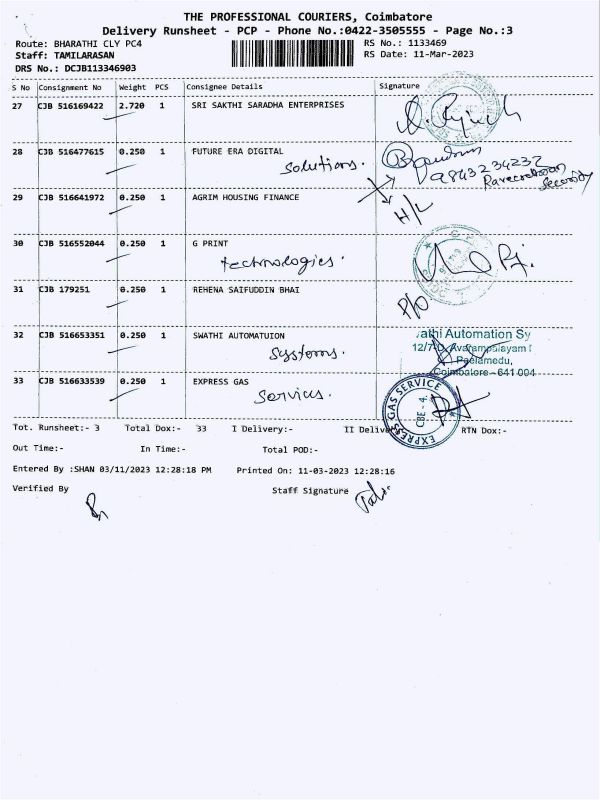 THE PROFESSIONAL COURIERS, Coimbatore
Delivery Runsheet - PCP - Phone No.:0422-3505555 - Page No.:3
Route: BHARATHI CLY PC4
RS No.: 1133469
Staff: TAMILARASAN
RS Date: 11-Mar-2023
DRS No.: DCJB113346903
S No Consignment No Weight PCS Consignee Details Signature
27 CJB 516169422 2.720 1 SRI SAKTHI SARADHA ENTERPRISES
28 CJB 516477615 0.250 1 FUTURE ERA DIGITAL
solutions.
9843234232
Security
29 CJB 516641972 0.250 1 AGRIM HOUSING FINANCE
H/L
30 CJB 516552044 0.250 1 G PRINT
technologies.
31 CJB 179251 0.250 1 REHENA SAIFUDDIN BHAI
P/O
32 CJB 516653351 0.250 1 SWATHI AUTOMATUION
systems.
athi Automation Sy
Avarampalayam
Peelamedu,
Coimbatore - 641 004
33 CJB 516633539 0.250 1 EXPRESS GAS
services.
EXPRESS GAS SERVICE
CBE - 4.
Tot. Runsheet:- 3 Total Dox:- 33 I Delivery:- II Delive RTN Dox:-
Out Time:- In Time:- Total POD:-
Entered By :SHAN 03/11/2023 12:28:18 PM Printed On: 11-03-2023 12:28:16
Verified By Staff Signature